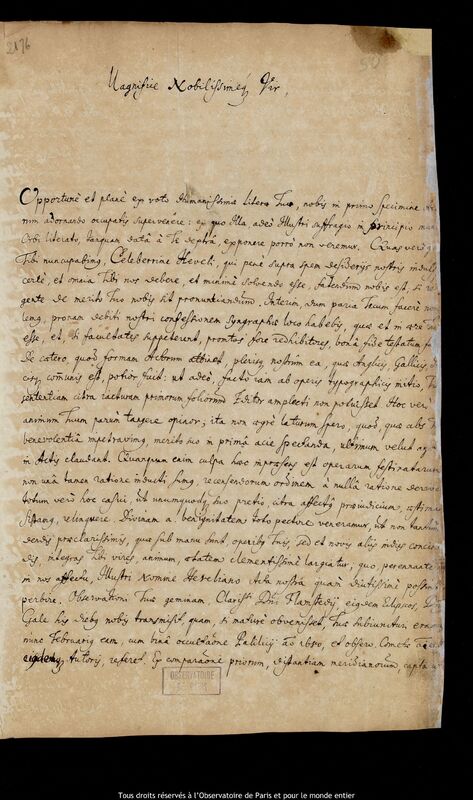 2176
50
Magnifice Nobilissimeq́ Vir,
Opportunè et planè ex voto Humanissimæ literæ Tuæ, nobis in primo specimine
nim adornando occupatis supervenêre: ex quo Illa, adeò Illustri suffragio in principio
Orbi literato, tanquam datâ à Te dextrâ, exponere porrò non veremur. Quas verò
Tibi nuncupasti, Celeberrime Heveli, qui penè supra spem desideriis nostris
certè, et omnia Tibi nos debere, et minimè solvendo esse, fatendum nobis est, si
gente de meritis Tuis nobis sit pronuntiandum. Interim, dum paria Tecum facere
leng, proram debiti nostri confessionem syngraphæ loco habebis, quæ et in
esse, et, si facultates suppeterent, promtos fore redhibitores, bonâ fide testatum
De cætero, quod formam Actorum attinet, plerisq nostrûm ea, quæ Anglicis, Gallicis
communis est, potior fuit: ut adeò, facto jam ab operis typographicis initio,
sententiam citra jacturam primorum foliorum Editor amplecti non potuisset. Hoc verò
animum Tuum parùm tangere opinor; ita non ægrè laturum spero, quod, quæ
benevolentiâ impetravimus, meritò suo in primâ acie spectanda, ultimum velut
in Actis claudant. Quanquam enim culpa hæc in præsens est operarum festinatarum
non unâ tamen ratione inducti sumus, recensendorum ordinem à nullâ ratione
totum verò hoc casui, ut unumquodq suo pretio, citra affectûs præjudicium, æstima
relinquere. Divinam a. benignitatem toto pectore veneramur, ut non tantùm
dendis præclarissimis, quæ sub manu sunt, operibus Tuis, sed et novis aliis indies
dis, integras Tibi vires, animum, ætatem clementissimè largiatur, quo perennante
in nos affectu, Illustri Nomine Heveliano Acta nostra quàm diutissimè
perhibere. Observationi Tuæ geminam, Clariss. Dni Flamstedij, eiqdem Eclipseos,
Gale his dieb9 nobis transmisit, quam, si maturè obvenisset, Tuæ subiunctur
nine Februarij eam, cum binâ occultatione Palilicij et observ. Cometæ
autoris, referet. Ex comparatione priorum, distantiam meridianorum,
OBSERVATOIRE
DE PARIS
Tous droits réservés à l'Observatoire de Paris et pour le monde entier